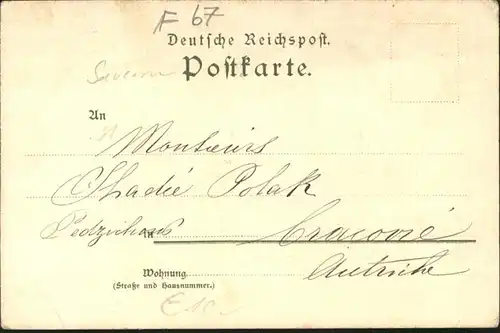 F 67
Deutsche Reichspost.
Postkarte.
An
Monsieurs
Thadie Polak
in Cracovie
Autriche
Wohnung
(Straße und Hausnummer.)